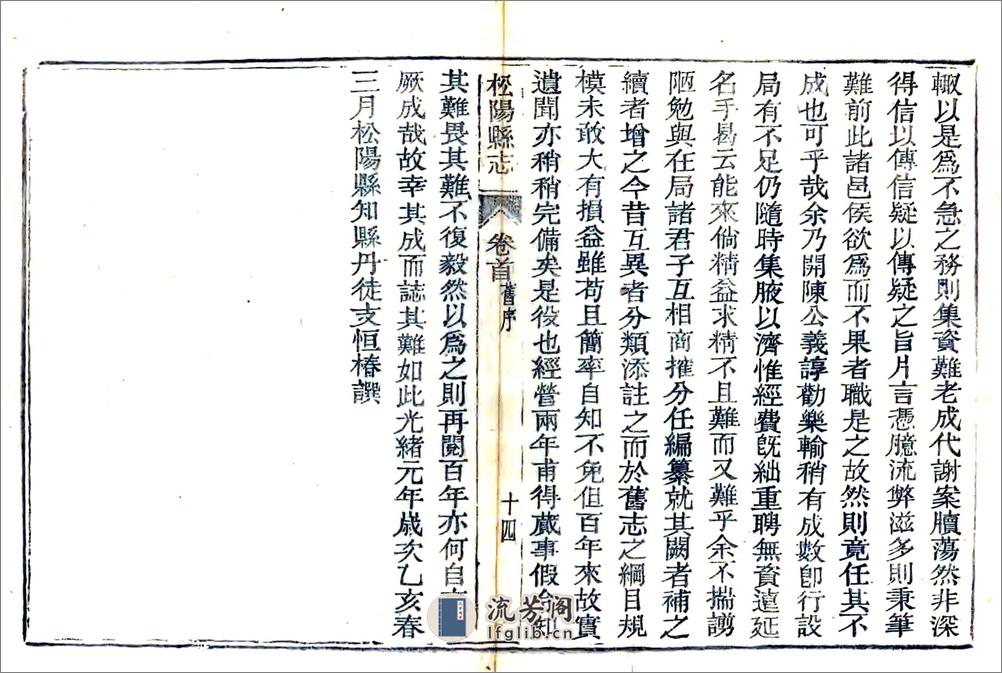 輙以是爲不急之務則集資難老成代謝案牘蕩然非深
得信以傳信疑以傳疑之旨片言憑臆流弊滋多則秉筆
難前此諸邑侯欲爲而不果者職是之故然則竟任其不
成也可乎哉余乃開陳公義諄勸樂輸稍有成數卽行設
局有不足仍隨時集腋以濟惟經費旣絀重聘無資遠延
名手曷云能來倘精益求精不且難而又難乎余不揣謭
陋勉與在局諸君子互相商搉分任編纂就其闕者補之
續者增之今昔互異者分類添註之而於舊志之綱目規
模未敢大有損益雖苟且簡率自知不免但百年來故實
遺聞亦稍稍完備矣是役也經營兩年甫得蕆事假令知
松陽縣志 卷首 舊序 十四
其難畏其難不復毅然以爲之則再閱百年亦何自
厥成哉故幸其成而誌其難如此光緒元年歲次乙亥春
三月松陽縣知縣丹徒支恒椿譔
流芳阁
lfglib.cn